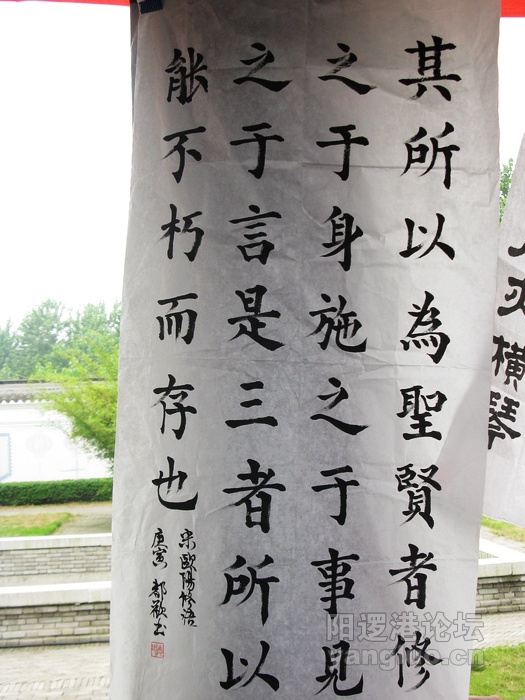 其所以為聖賢者修
之于身施之于事見
之于言是三者所以
能不朽而存也
宋歐陽修語
庚寅 郝欲書
横琴
阳逻港论坛